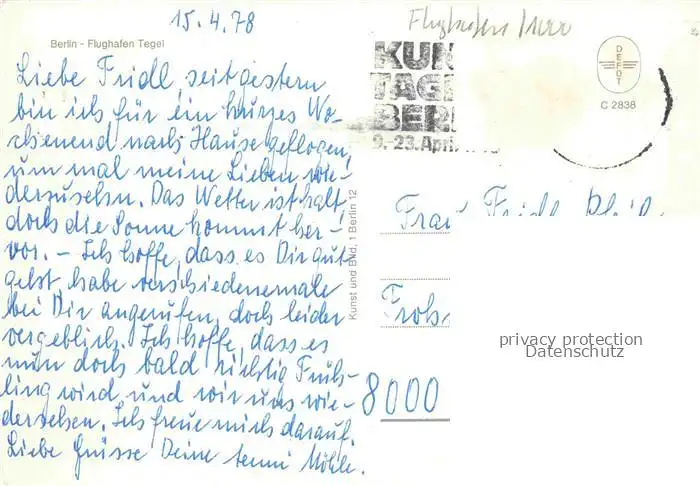 15.4.78
Flughafen
Berlin - Flughafen Tegel
Liebe Fridl, seit gestern
bin ich für ein kurzes Wo-
chenend nach Hause geflogen,
um mal meine Lieben wie-
derzusehn. Das Wetter ist kalt,
doch die Sonne kommt her-
vor. – Ich hoffe, dass es Dir gut
geht, habe verschiedenemale
bei Dir angerufen, doch leider
vergeblich. Ich hoffe, dass es
nun doch bald richtig Früh-
ling wird und wir uns wie-
dersehen. Ich freue mich darauf.
Liebe Grüsse Deine
Kunst und Bild, 1 Berlin 12
KUN
TAGE
BERL
9.-23. April
DEFOT
C 2838
Frau Fridl
8000
privacy protection
Datenschutz